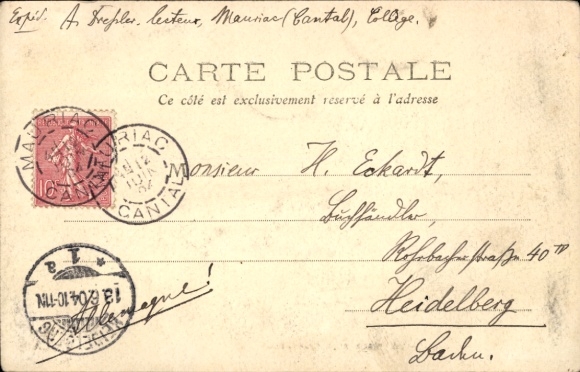 Expéd. A. Dressler, lecteur, Mauriac (Cantal), Collège.
CARTE POSTALE
Ce côté est exclusivement réservé à l'adresse
MAURIAC
CANTAL
MAURIAC
12
JUIN
04
CANTAL
Monsieur H. Eckardt,
Buchhändler,
Rohrbacherstraße 40
Heidelberg
Baden.
Allemagne!
* 1 a
13.6.04.10-11N.
HEIDELBERG